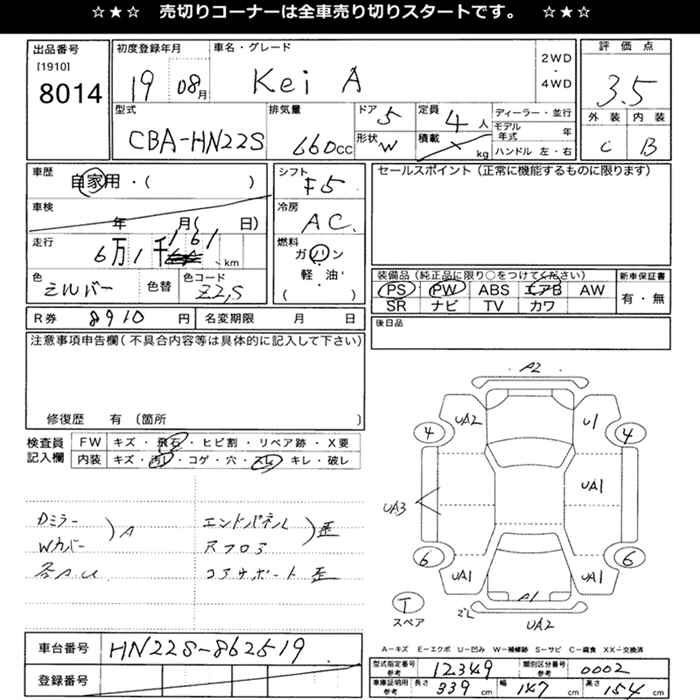 ☆★☆　売切りコーナーは全車売り切りスタートです。　☆★☆
出品番号
[1910]
8014
初度登録年月
19 08月
車名・グレード
Kei A
2WD
・
4WD
評価点
3.5
外装 内装
C B
型式
CBA-HN22S
排気量
660cc
ドア 5
形状 W
定員 4人
積載 kg
ディーラー・並行
モデル年式 年
ハンドル 左・右
車歴
自家用・( )
車検
年 月( 日)
走行
6万1千161km
色
シルバー
色替
色コード
Z2S
シフト
F5
冷房
AC
燃料
ガソリン
軽油
( )
セールスポイント(正常に機能するものに限ります)
装備品(純正品に限り○をつけてください)
PS PW ABS エアB AW
SR ナビ TV カワ
新車保証書
有・無
後日品
R券 8910円
名変期限 月 日
注意事項申告欄(不具合内容等は具体的に記入して下さい)
修復歴 有 (箇所 )
検査員
記入欄
FW キズ・飛石・ヒビ割・リペア跡・X要
内装 キズ・汚レ・コゲ・穴・スレ・キレ・破レ
Dミラー
Wカバー
)A
各AU
エンドパネル
Rフロア
)歪
コアサポート 歪
A2
UA2 U1
4 4
UA1
UA3
6 6
UA1 UA1
A1
UA2
T
スペア
A－キズ E－エクボ U－凹み W－補修跡 S－サビ C－腐食 XX－交換済
車台番号
HN22S-862519
登録番号
型式指定番号
参考
12349
類別区分番号
参考
0002
車庫証明用
参考
長さ 339 cm 幅 147 cm 高さ 154 cm